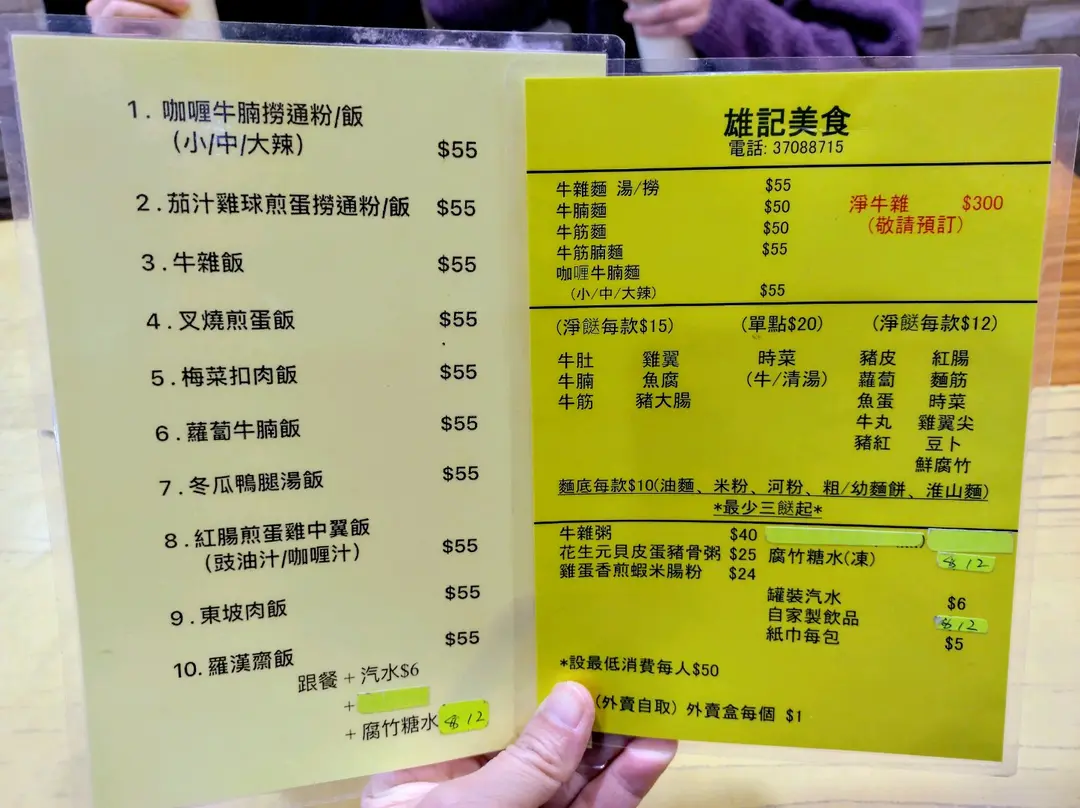 1. 咖喱牛腩撈通粉/飯
(小/中/大辣) $55
2. 茄汁雞球煎蛋撈通粉/飯 $55
3. 牛雜飯 $55
4. 叉燒煎蛋飯 $55
5. 梅菜扣肉飯 $55
6. 蘿蔔牛腩飯 $55
7. 冬瓜鴨腿湯飯 $55
8. 紅腸煎蛋雞中翼飯
(豉油汁/咖喱汁) $55
9. 東坡肉飯 $55
10. 羅漢齋飯 $55
跟餐 + 汽水$6
+
+ 腐竹糖水 $12
雄記美食
電話: 37088715
牛雜麵 湯/撈 $55
牛腩麵 $50
牛筋麵 $50
牛筋腩麵 $55
咖喱牛腩麵
(小/中/大辣) $55
淨牛雜 $300
(敬請預訂)
(淨餸每款$15) (單點$20) (淨餸每款$12)
牛肚 雞翼 時菜 豬皮 紅腸
牛腩 魚腐 (牛/清湯) 蘿蔔 麵筋
牛筋 豬大腸 魚蛋 時菜
牛丸 雞翼尖
豬紅 豆卜
鮮腐竹
麵底每款$10(油麵、米粉、河粉、粗/幼麵餅、淮山麵)
*最少三餸起*
牛雜粥 $40
花生元貝皮蛋豬骨粥 $25 腐竹糖水(凍) $12
雞蛋香煎蝦米腸粉 $24
罐裝汽水 $6
自家製飲品 $12
紙巾每包 $5
*設最低消費每人$50
(外賣自取) 外賣盒每個 $1